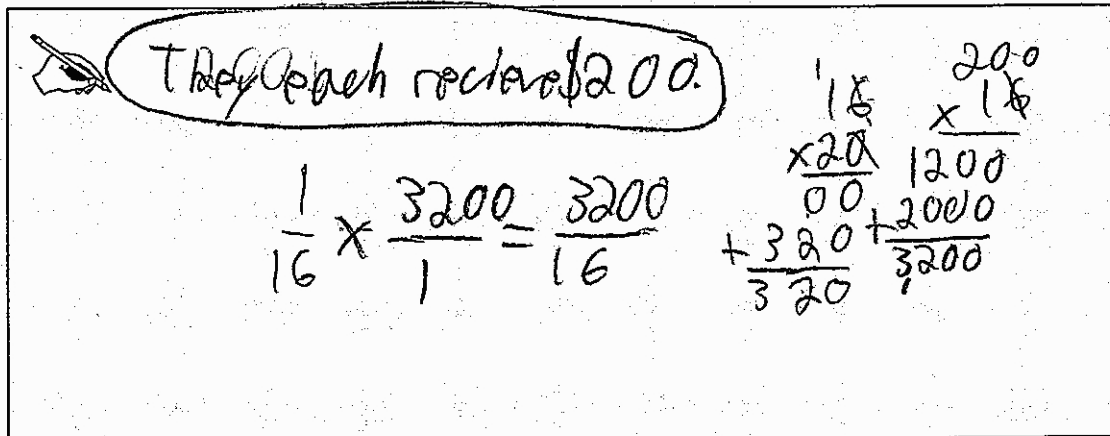 They each recieve $200.
1/16 x 3200/1 = 3200/16
1
16
x20
00
+320
320
200
x 16
1200
+2000
3,200